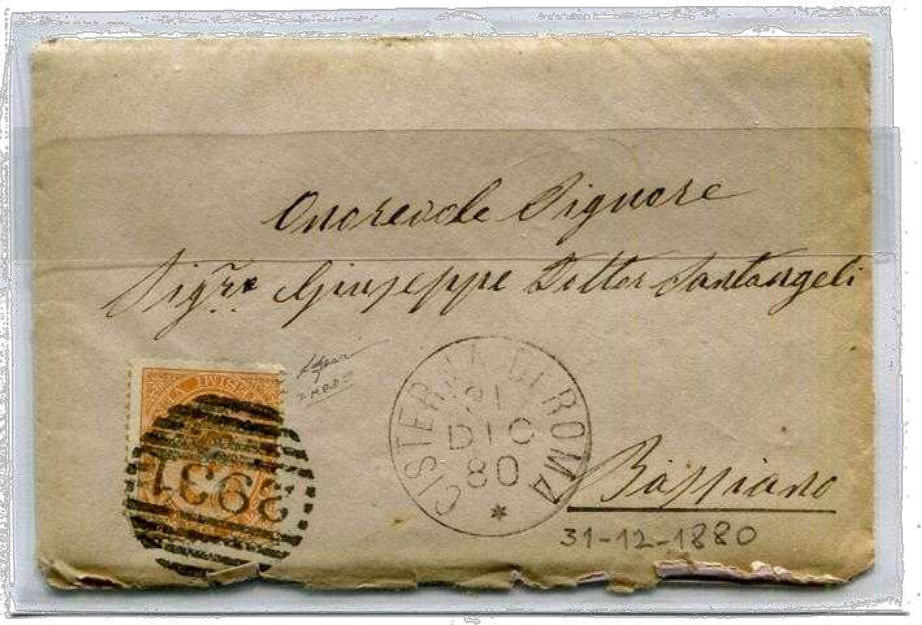 Onorevole Signore
Sigre Giuseppe Dottor Santangeli
CISTERNA DI ROMA
31
DIC
80
*
3931
Bassiano
31-12-1880